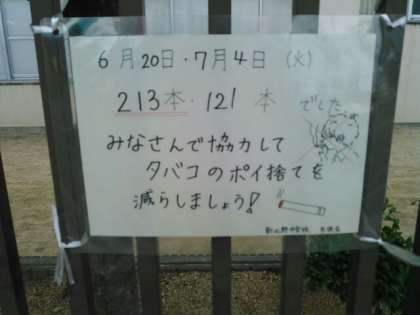 6月20日・7月4日 (火)
213本・121本 でした
みなさんで協力して
タバコのポイ捨てを
減らしましょう!